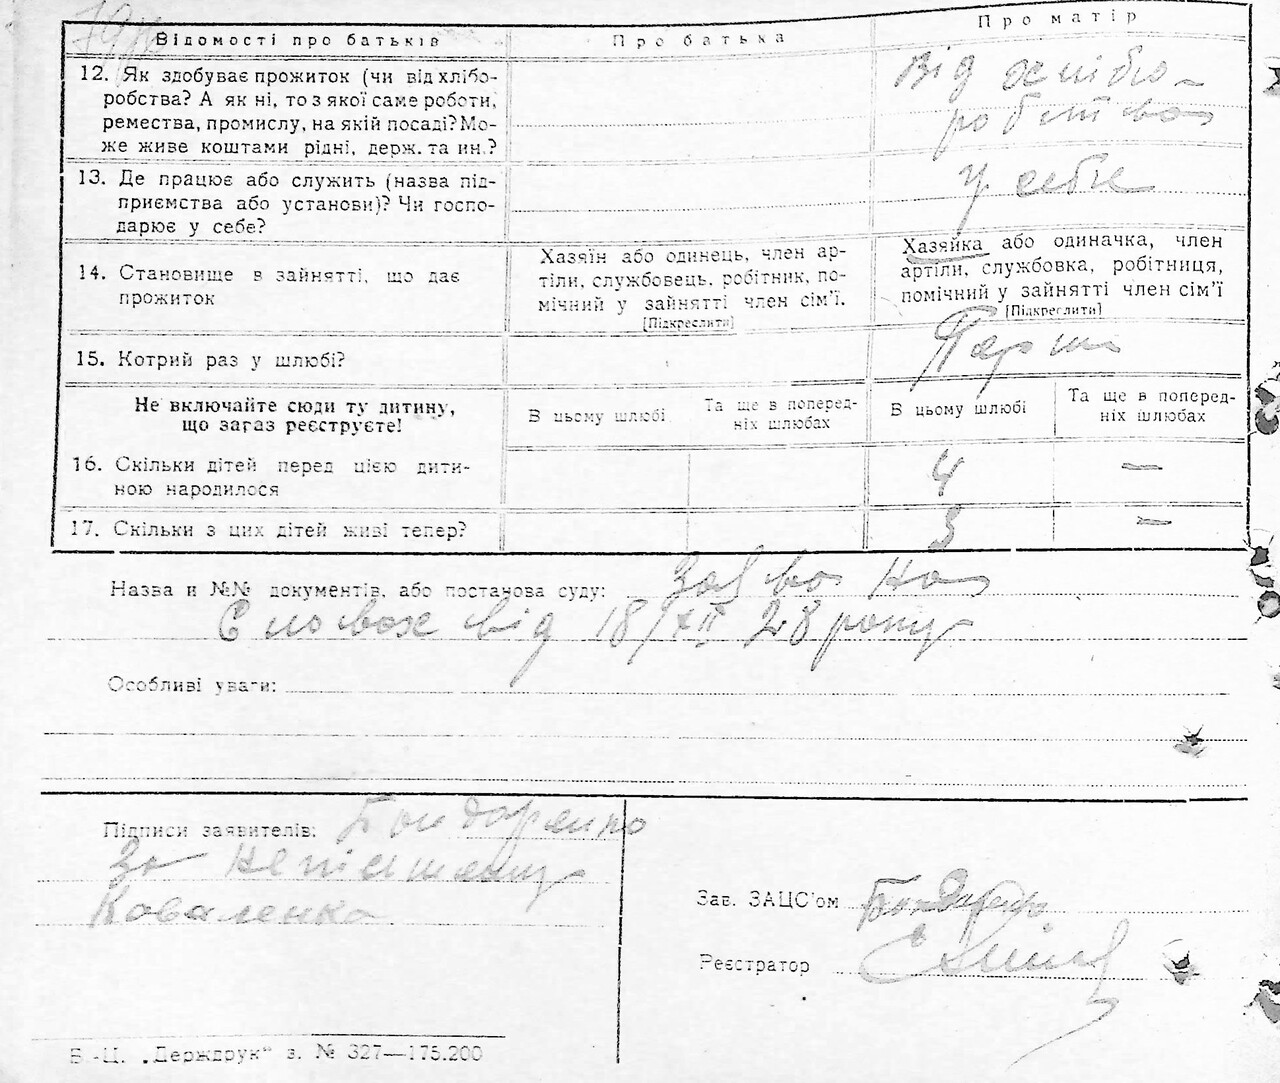 Відомості про батьків
Про батька
Про матір
12. Як здобуває прожиток (чи від хлібо-
робства? А як ні, то з якої саме роботи,
ремества, промислу, на якій посаді? Мо-
же живе коштами рідні, держ. та ин.?
Від хлібо-
робства
13. Де працює або служить (назва під-
приємства або установи)? Чи госпо-
дарює у себе?
у себе
14. Становище в зайнятті, що дає
прожиток
Хазяїн або одинець, член ар-
тіли, службовець, робітник, по-
мічний у зайнятті член сім’ї.
[Підкреслити]
Хазяйка або одиначка, член
артіли, службовка, робітниця,
помічний у зайнятті член сім’ї
[Підкреслити]
15. Котрий раз у шлюбі?
Перш
Не включайте сюди ту дитину,
що зараз реєструєте!
В цьому шлюбі
Та ще в поперед-
ніх шлюбах
В цьому шлюбі
Та ще в поперед-
ніх шлюбах
16. Скільки дітей перед цією дити-
ною народилося
4
—
17. Скільки з цих дітей живі тепер?
3
—
Назва и №№ документів, або постанова суду: Заява на
словах від 18/XII 28 року
Особливі уваги:
Підписи заявителів: Бондаренко
За неписьменну
Коваленко
Зав. ЗАЦС’ом Бондаренко
Реєстратор
В.-Ц. „Держдрук“ з. № 327—175.200